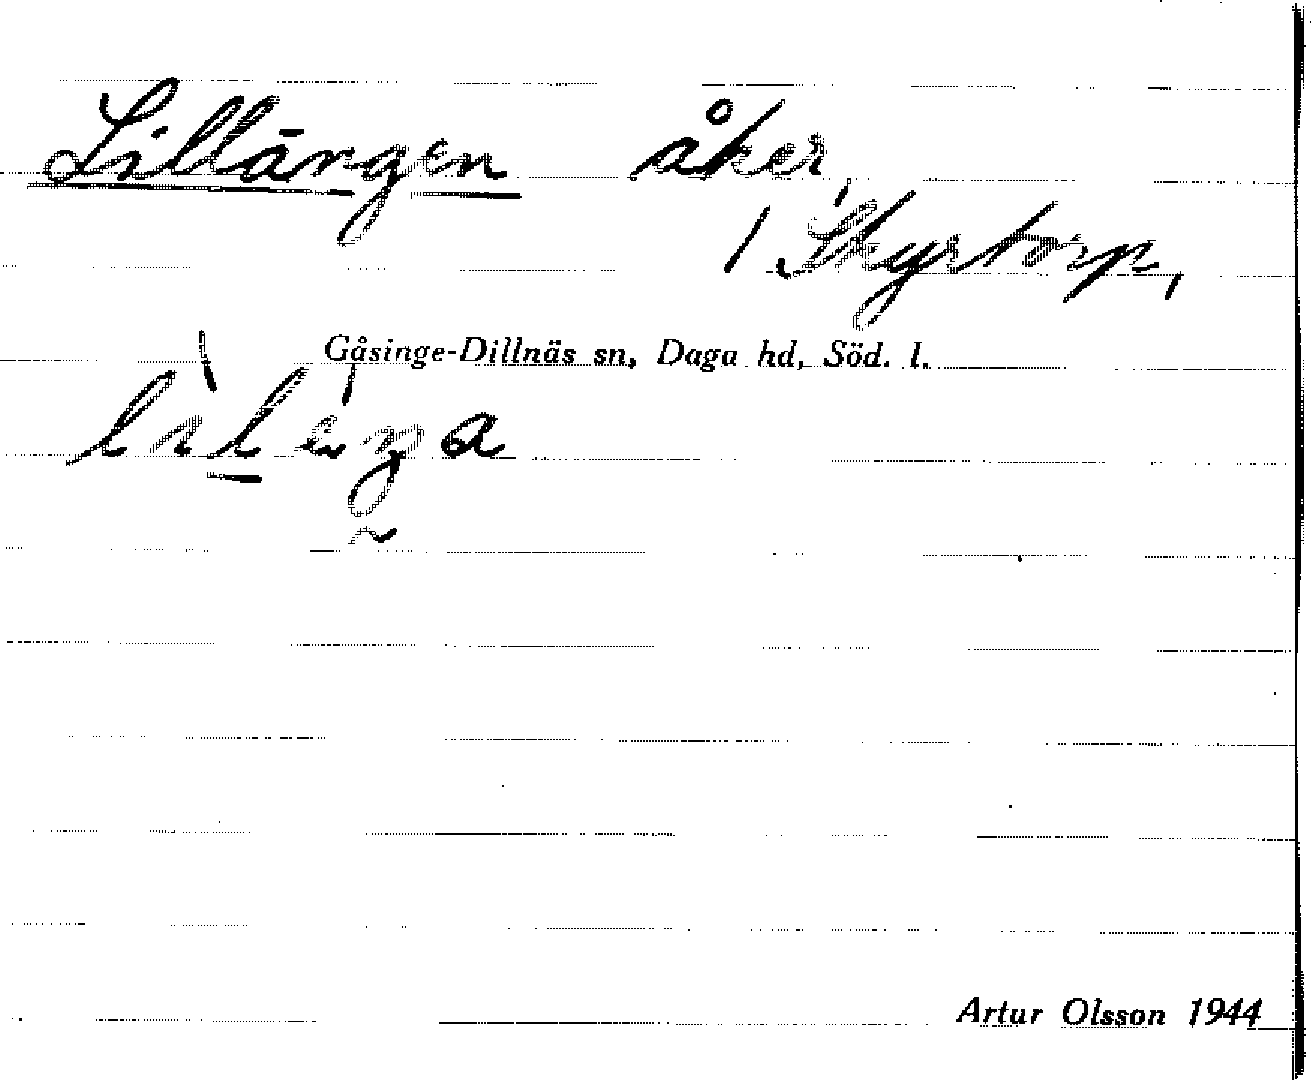 Lillängen åker
/ Skyrtorp,
Gåsinge-Dillnäs sn, Daga hd, Söd. l.
Artur Olsson 1944